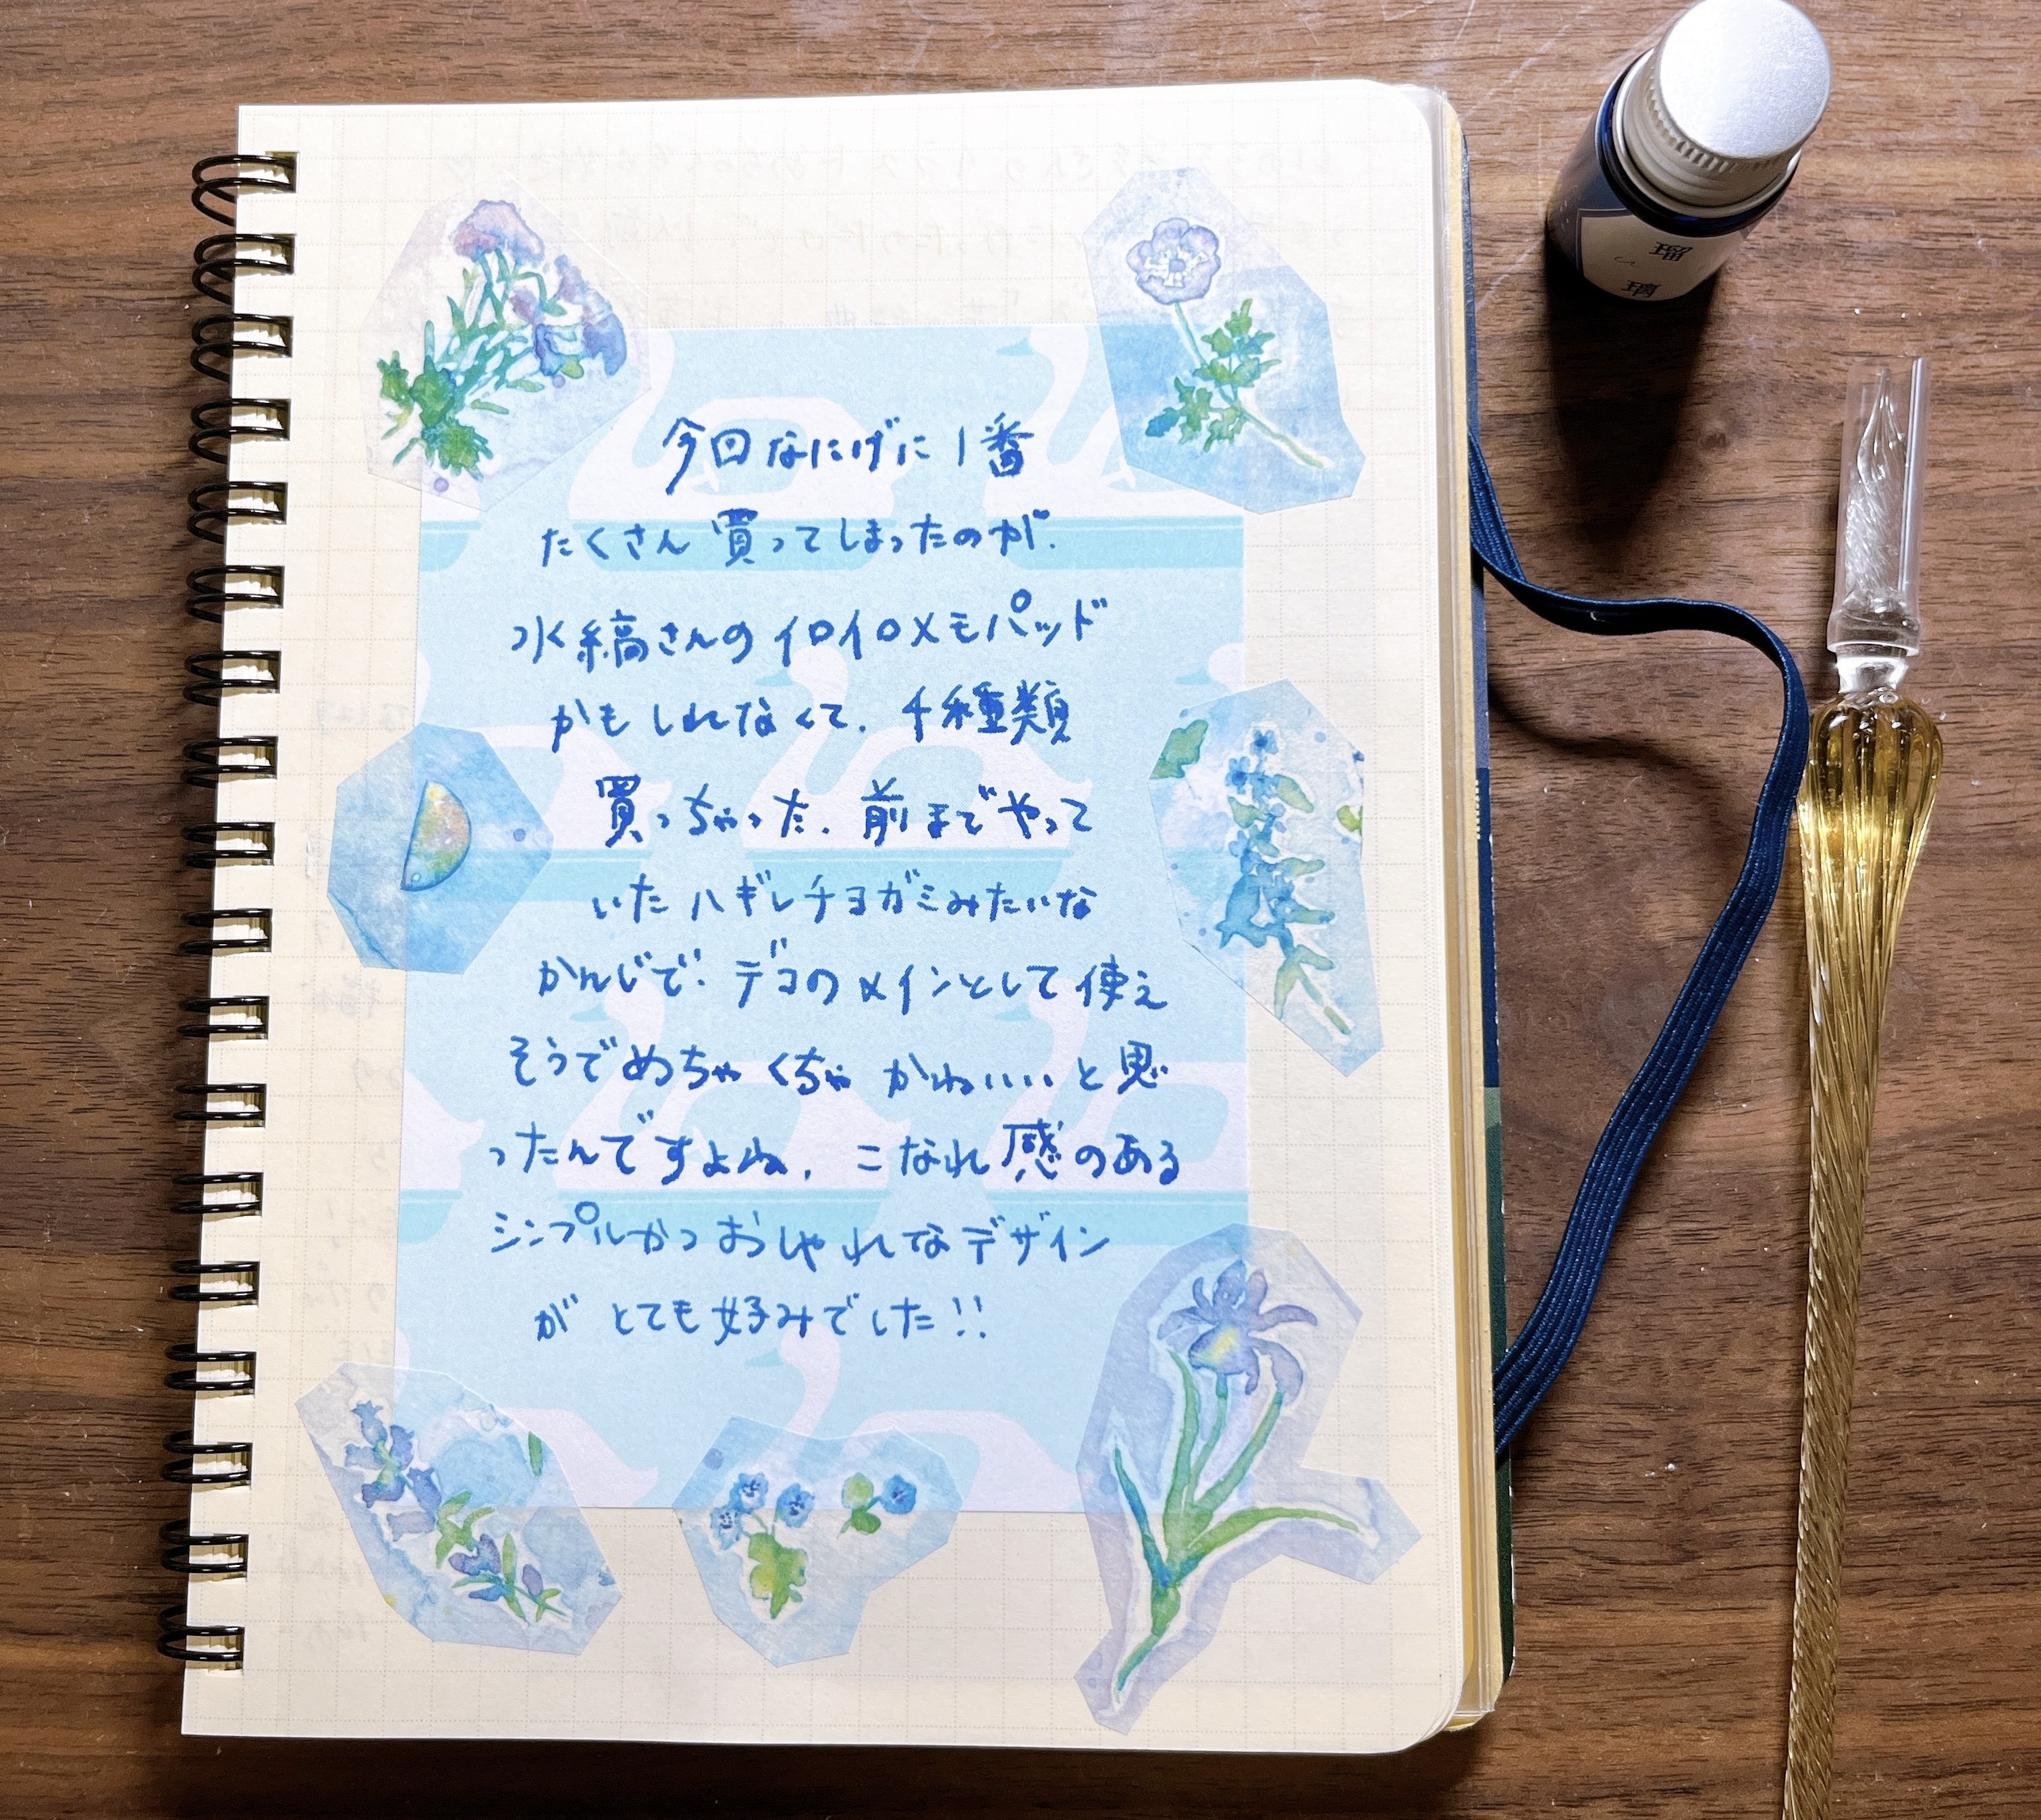 今回なにげに1番
たくさん買ってしまったのが、
水縞さんのイロイロメモパッド
かもしれなくて、4種類
買っちゃった、前までやって
いたハギレチヨガミみたいな
かんじで、デコのメインとして使え
そうでめちゃくちゃかわいいと思
ったんですよね、こなれ感のある
シンプルかつおしゃれなデザイン
がとても好みでした!!
瑠璃